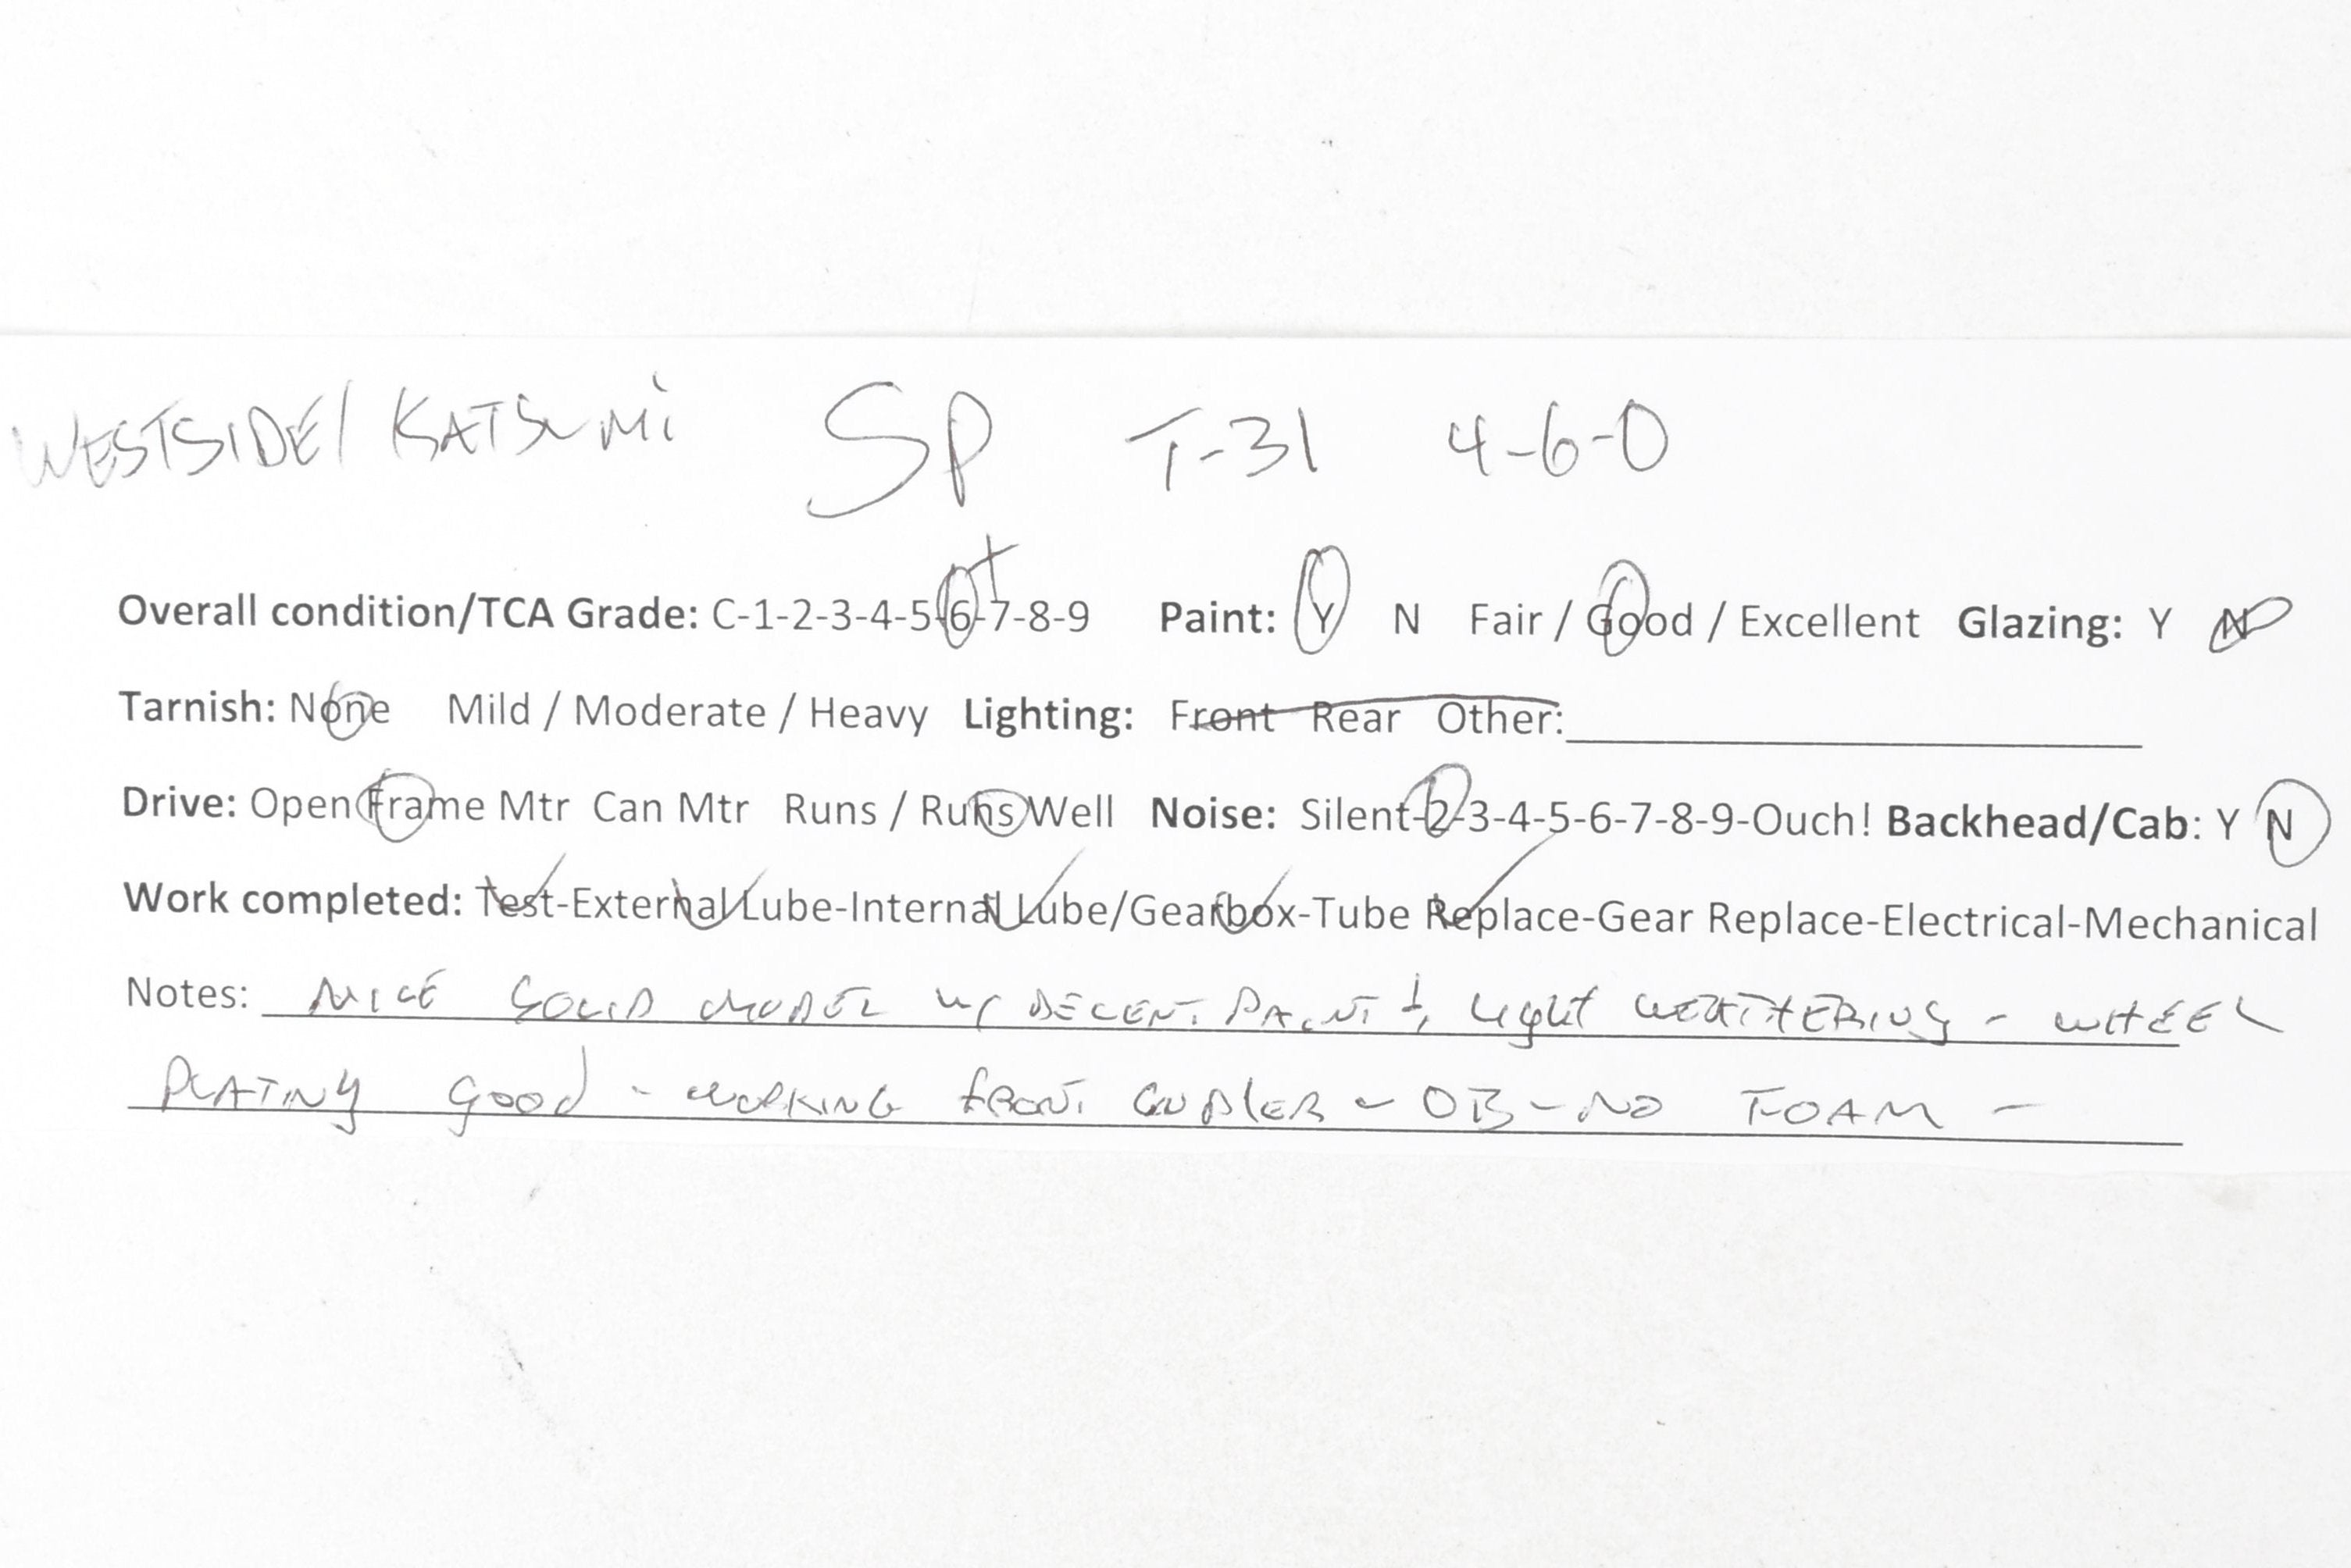 WESTSIDE/ KATSUMi SP T-31 4-6-0
Overall condition/TCA Grade: C-1-2-3-4-5-6-7-8-9 + Paint: Y N Fair / Good / Excellent Glazing: Y N
Tarnish: None Mild / Moderate / Heavy Lighting: Front Rear Other:
Drive: Open Frame Mtr Can Mtr Runs / Runs Well Noise: Silent-2-3-4-5-6-7-8-9-Ouch! Backhead/Cab: Y N
Work completed: Test-External Lube-Internal Lube/Gearbox-Tube Replace-Gear Replace-Electrical-Mechanical
Notes: NICE SOLID MODEL w/ DECENT PAINT + light WEATHERING - WHEEL
PLATING good - WORKING fRONT COUPlER - OB - NO FOAM -